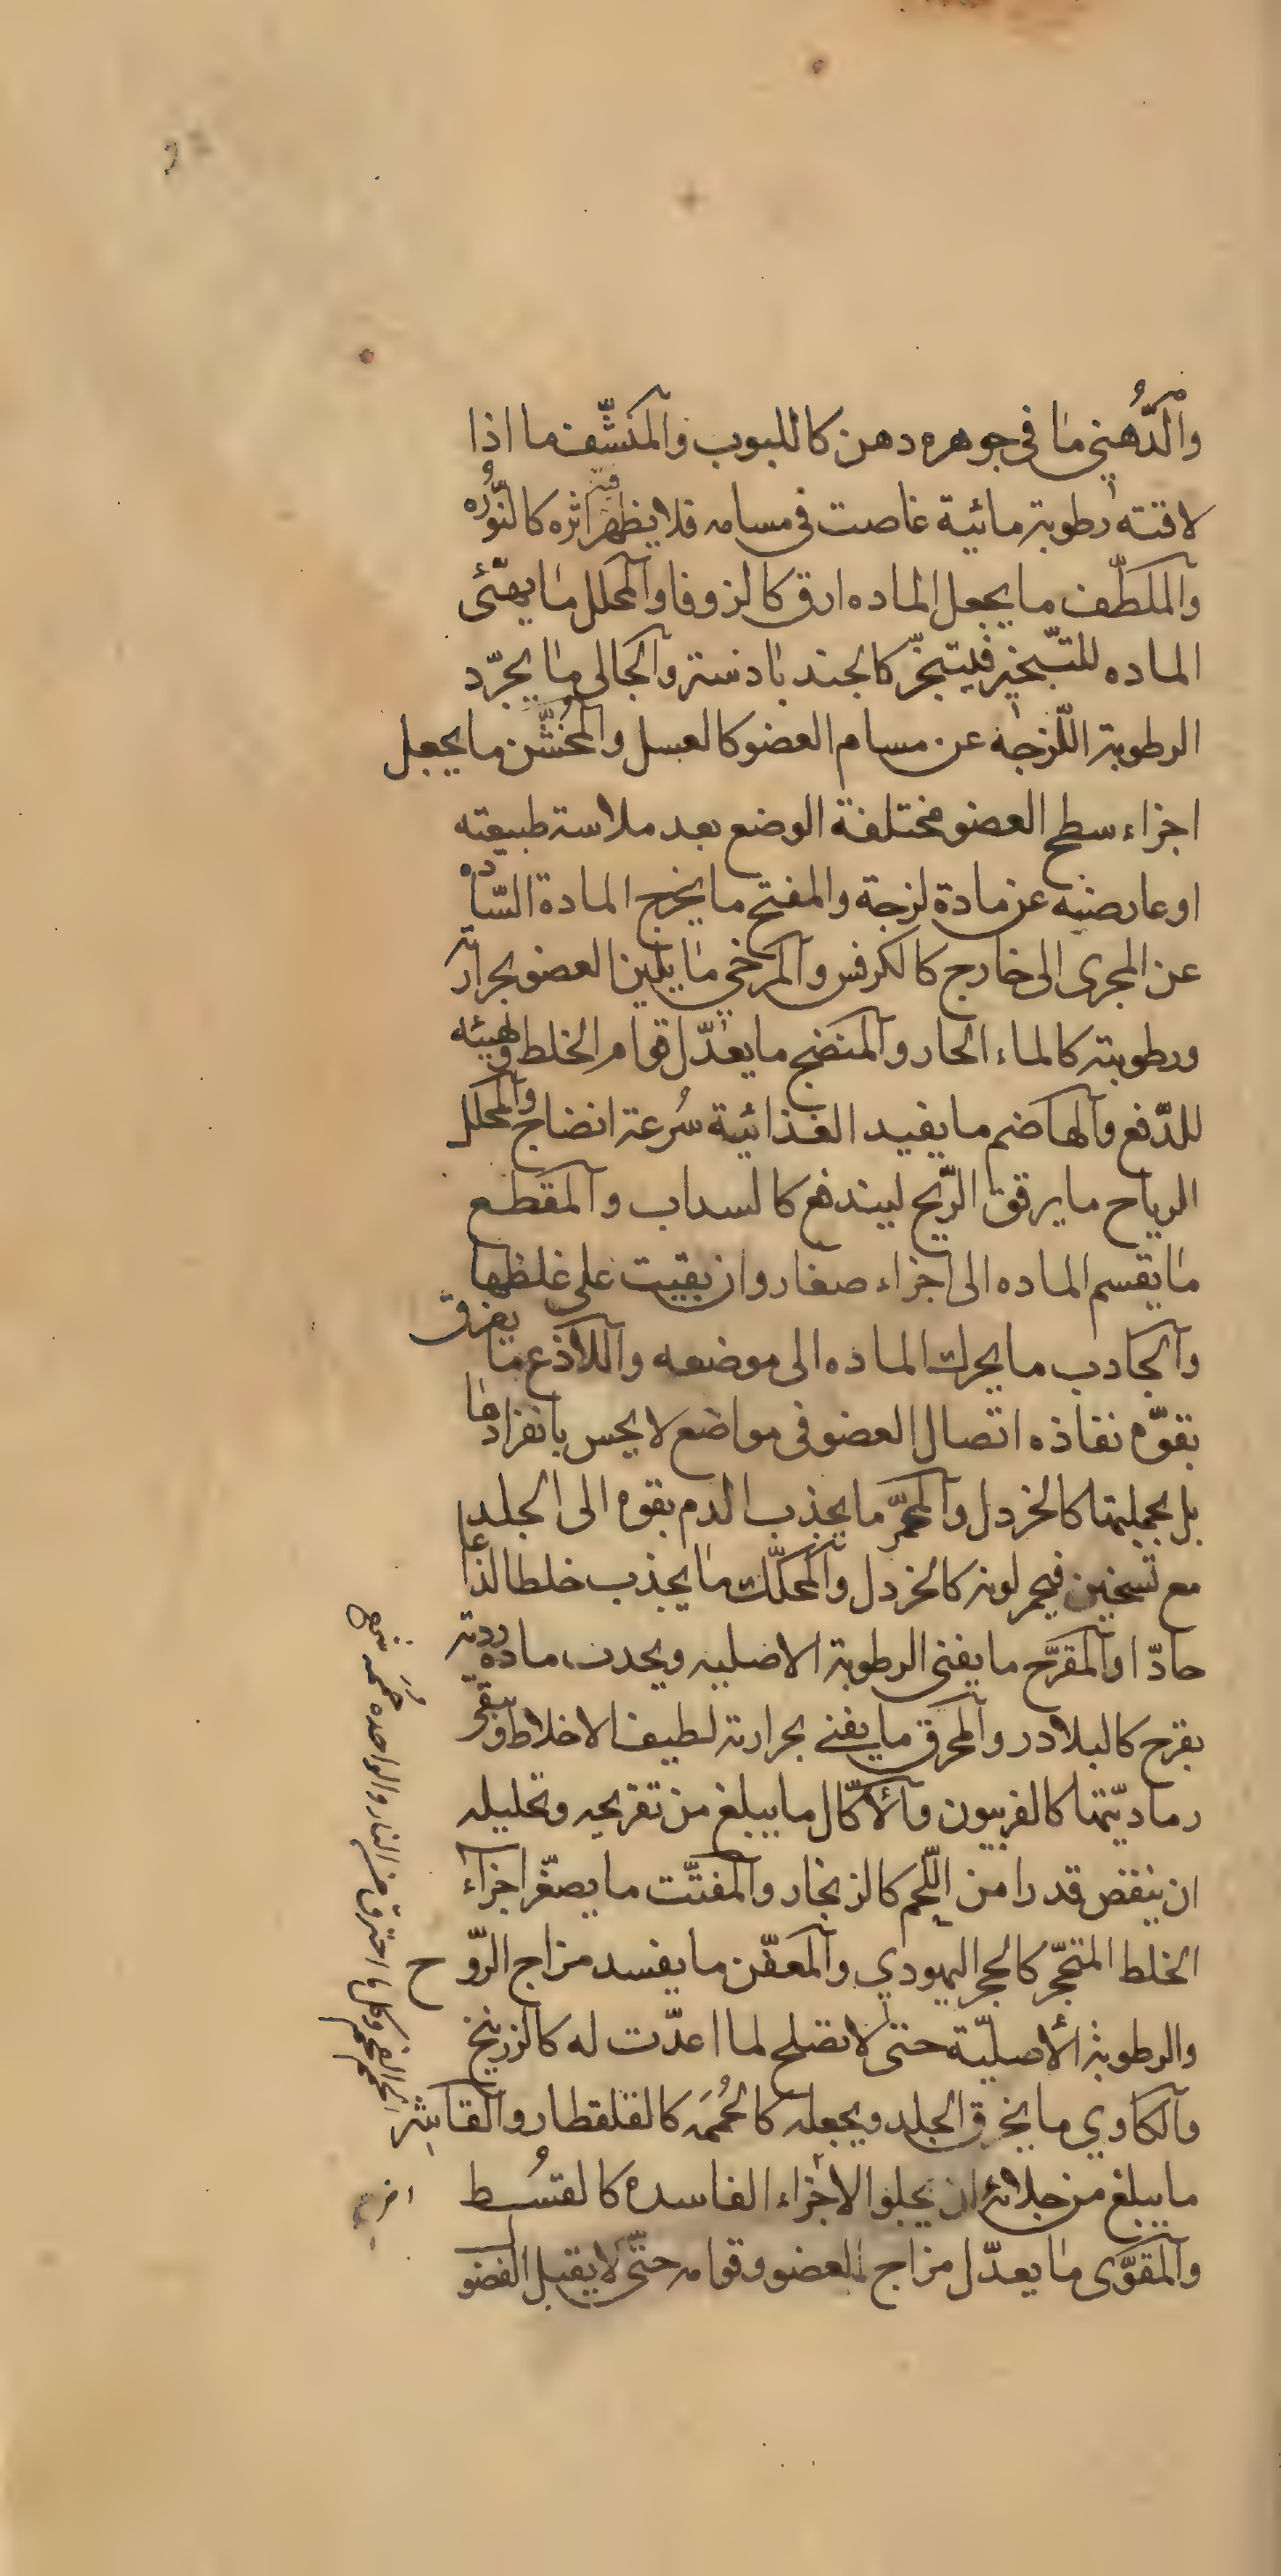 والدُّهني ما في جوهره دهن كاللبوب والمنشِّف ما اذا
لاقته رطوبة مائية غاصت في مسامه فلا يظهر فيه اثره كالنُّوره
والملطّف ما يجعل الماده ارق كالزوفا والمحلل ما يهيّئ
الماده للتّبخير فيتبخّر كالجند بادستر والجالى ما يجرّد
الرطوبة اللّزجة عن مسام العضو كالعسل والمخُشّن ما يجعل
اجزاء سطح العضو مختلفة الوضع بعد ملاسة طبيعته
او عارضيه عن مادة لزجة والمفتح ما يخرج المادة السّاده
عن المجرى الى خارج كالكرفس والمرخي ما يلين العضو بحرارته
ورطوبته كالماء الحار والمنضج ما يعدّل قوام الخلط وهيئه
للدّفع والهاضم ما يفيد الغذائية سُرعة انضاج والمحلل
الرياح ما يرقق الرّيح ليندفع كالسداب والمقطع
ما يقسم الماده الى اجزاء صغار وان بقيت على غلظها
والجادب ما يحرك الماده الى موضعه واللاذع ما يفرق
بقوّه نفاذه اتصال العضو في مواضع لا يحس بانفرادها
بل بجملتها كالخردل والمحمّر ما يجذب الدم بقوه الى الجلد
مع تسخين فيحمر لونه كالخردل والمحكّك ما يجذب خلطا لذاعا
حادّا والمقرّح ما يفنى الرطوبة الاصليه ويحدث مادة رديّة
يقرح كالبلادر والمحرق ما يفنى بحرارته لطيف الاخلاط وتبقى
رماديّتها كالفربيون والأكّال ما يبلغ من تقريحه وتحليله
ان ينقص قدرا من اللّحم كالزنجار والمفتّت ما يصغّر اجزاء
الخلط المتحجّر كالحجر اليهودي والمعفّن ما يفسد مزاج الرّوح
والرطوبة الأصليّة حتى لا تصلح لما اعدّت له كالزرنيخ
والكاوي ما يحرق الجلد ويجعله كالحُممَه كالقلقطار والقاشر
ما يبلغ من جلائه ان يجلو الاجزاء الفاسده كالقسُط
والمقوّى ما يعدّل مزاج العضو وقوامه حتّى لا يقبل الفضو
الفحم وكل ما احترق من النار والواحده حممه